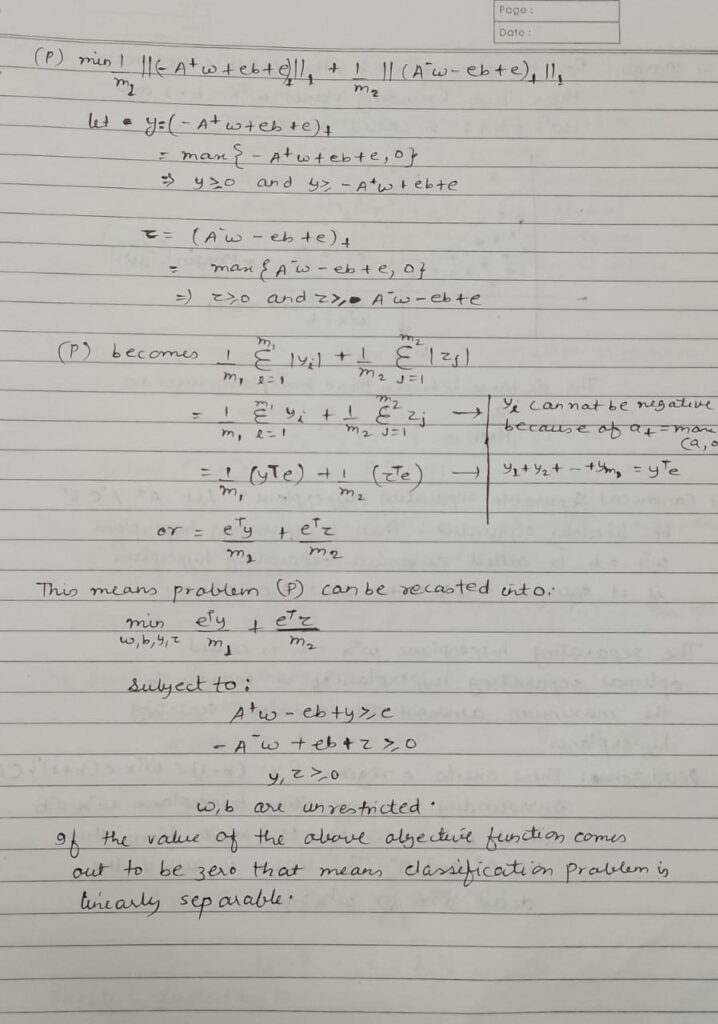 Page :
Date :
(P) min 1/m₁ ||(-A⁺w+eb+e)₊||₁ + 1/m₂ ||(A⁻w-eb+e)₊||₁
let y=(-A⁺w+eb+e)₊
= max{-A⁺w+eb+e,0}
⇒ y≥0 and y≥ -A⁺w+eb+e
z= (A⁻w-eb+e)₊
= max{A⁻w-eb+e, 0}
⇒ z≥0 and z≥ A⁻w-eb+e
(P) becomes 1/m₁ Σ_{i=1}^{m₁} |yᵢ| + 1/m₂ Σ_{j=1}^{m₂} |zⱼ|
= 1/m₁ Σ_{i=1}^{m₁} yᵢ + 1/m₂ Σ_{j=1}^{m₂} zⱼ → yᵢ cannot be negative
because of a₊ = max
(a,0
= 1/m₁ (yᵀe) + 1/m₂ (zᵀe) → y₁+y₂+--+yₘ₁ = yᵀe
or = eᵀy/m₁ + eᵀz/m₂
This means problem (P) can be recasted into:
min_{w,b,y,z} eᵀy/m₁ + eᵀz/m₂
subject to :
A⁺w-eb+y≥e
-A⁻w+eb+z≥0
y,z≥0
w,b are unrestricted.
If the value of the above objective function comes
out to be zero that means classification problem is
linearly separable.